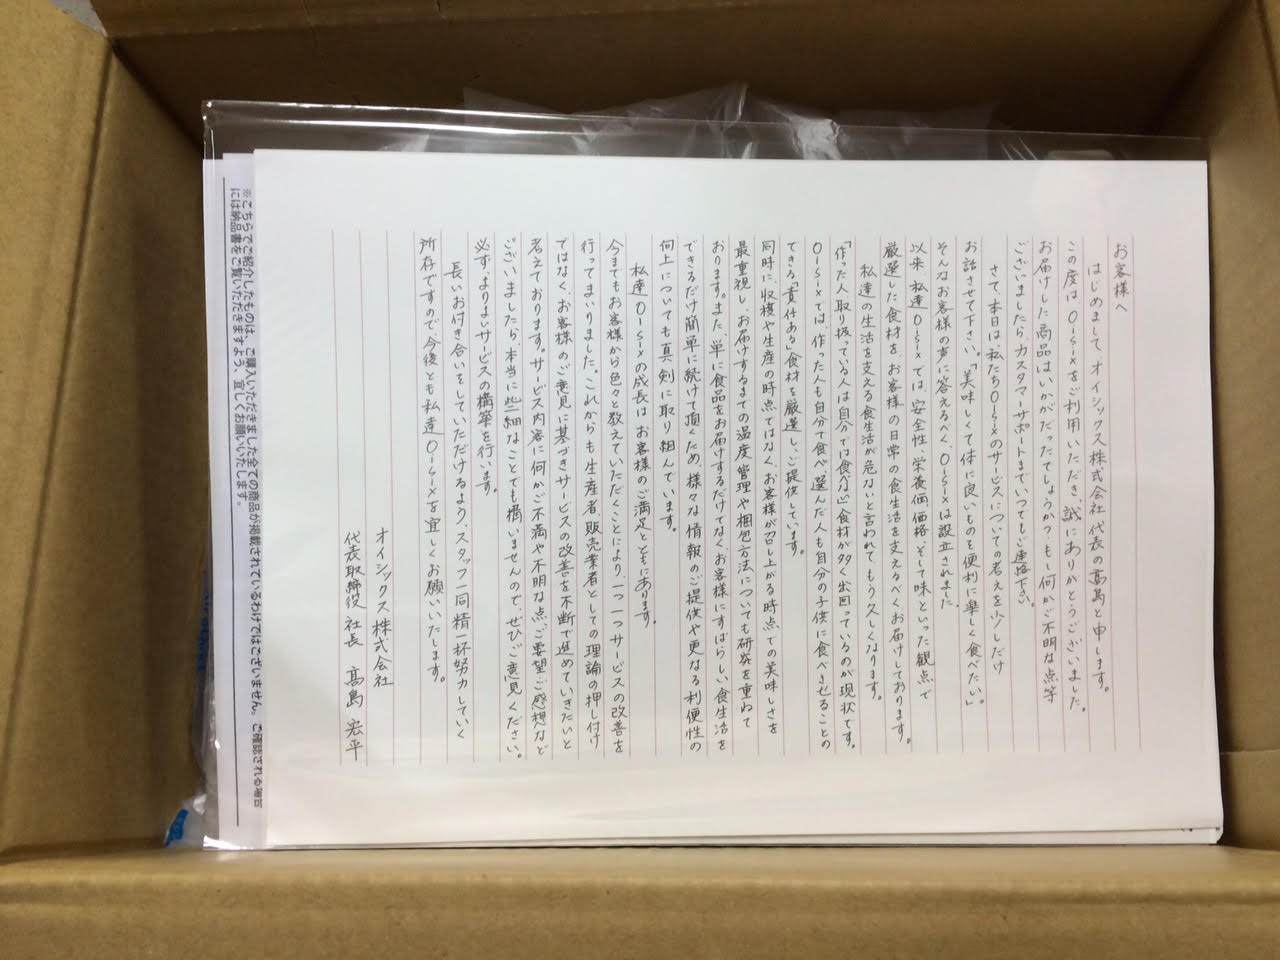 お客様へ
はじめまして、オイシックス株式会社 代表の高島と申します。
この度は、Oisixをご利用いただき、誠にありがとうございました。
お届けした商品はいかがだったでしょうか？もし何かご不明な点等
ございましたら、カスタマーサポートまでいつでもご連絡下さい。
さて、本日は、私たちOisixのサービスについての考えを少しだけ
お話させて下さい。「美味しくて体に良いものを便利に楽しく食べたい」
そんなお客様の声に答えるべく、Oisixは設立されました
以来、私達Oisixでは、安全性、栄養価、価格、そして味といった観点で
厳選した食材を、お客様の日常の食生活を支えるべくお届けしております。
私達の生活を支える食生活が危ないと言われて、もう久しくなります。
「作った人、取り扱っている人は自分では食べない」食材が多く出回っているのが現状です。
Oisixでは、作った人も自分で食べ、選んだ人も自分の子供に食べさせることの
できる「責任ある」食材を厳選し、ご提供しています。
同時に、収穫や生産の時点ではなく、お客様が召し上がる時点での美味しさを
最重視し、お届けするまでの温度管理や梱包方法についても研究を重ねて
おります。また、単に食品をお届けするだけでなく、お客様にすばらしい食生活を
できるだけ簡単に続けて頂くため、様々な情報のご提供や更なる利便性の
向上についても真剣に取り組んでいます。
私達Oisixの成長はお客様のご満足とともにあります。
今までもお客様から色々と教えていただくことにより、一つ一つサービスの改善を
行ってまいりました。これからも生産者、販売業者としての理論の押し付け
ではなく、お客様のご意見に基づきサービスの改善を不断で進めていきたいと
考えております。サービス内容に何かご不満や不明な点、ご要望、ご感想など
ございましたら、本当に些細なことでも構いませんので、ぜひご意見ください。
必ず、よりよいサービスの構築を行います。
長いお付き合いをしていただけるよう、スタッフ一同精一杯努力していく
所存ですので、今後とも私達Oisixを宜しくお願いいたします。
オイシックス株式会社
代表取締役社長 高島 宏平
※こちらでご紹介したものは、ご購入いただきました全ての商品が掲載されているわけではございません。ご確認される場合
には納品書をご覧いただきますよう、宜しくお願いいたします。